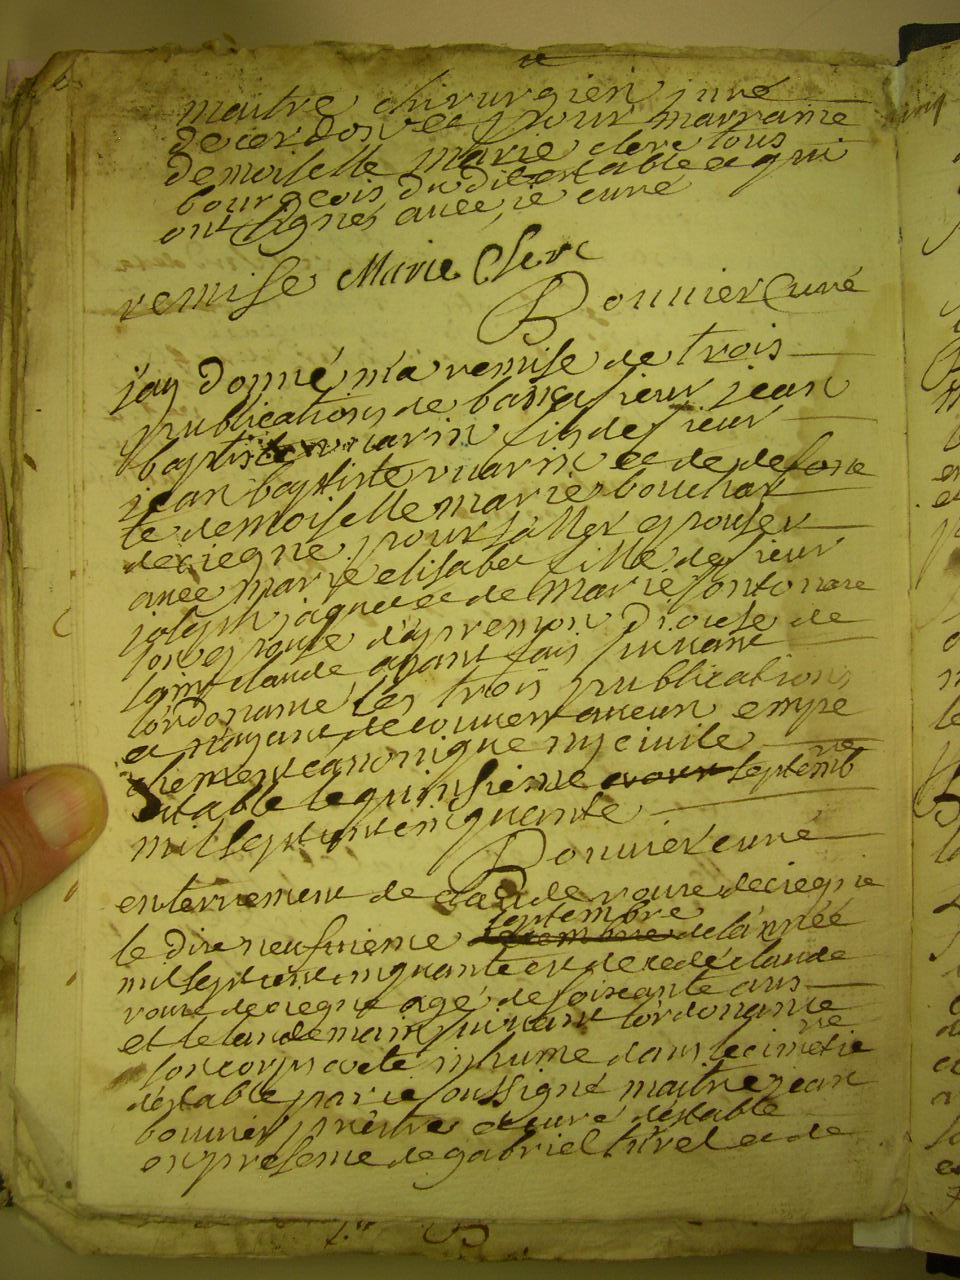 maitre chirurgien juré
de cordon et pour marraine
demoiselle marie clerc tous
bourgeois du dit estable et qui
ont signés avec je curé
remise Marie Clerc
Bonnier Curé
jay donné ma remise de trois
publications de bans a sieur jean
baptiste vuarin fils de sieur
jean baptiste vuarin et de defon
te demoiselle marie
de ciegne pour aller epouser
avec marie elisabet fille de sieur
joseph jaquet et de marie
son epouse diocese de
saint claude ayant fais suivant
lordonance les trois publications
et nayant decouvert aucun empe
chement canonique ny civile
estable le quinsieme septemb
re
mil sept cent cinquante
Bonnier curé
enterrement de claude de ciegne
le dixneufvieme septembre de lannée
mil sept cent cinquante est decedé claude
de ciegne agé de soixante ans
et le landemain suivant lordonance
son corps a eté inhumé dans le cimetie
re
destable par je soussigné maitre jean
bonnier prêtre et curé destable
en presence de gabriel et de